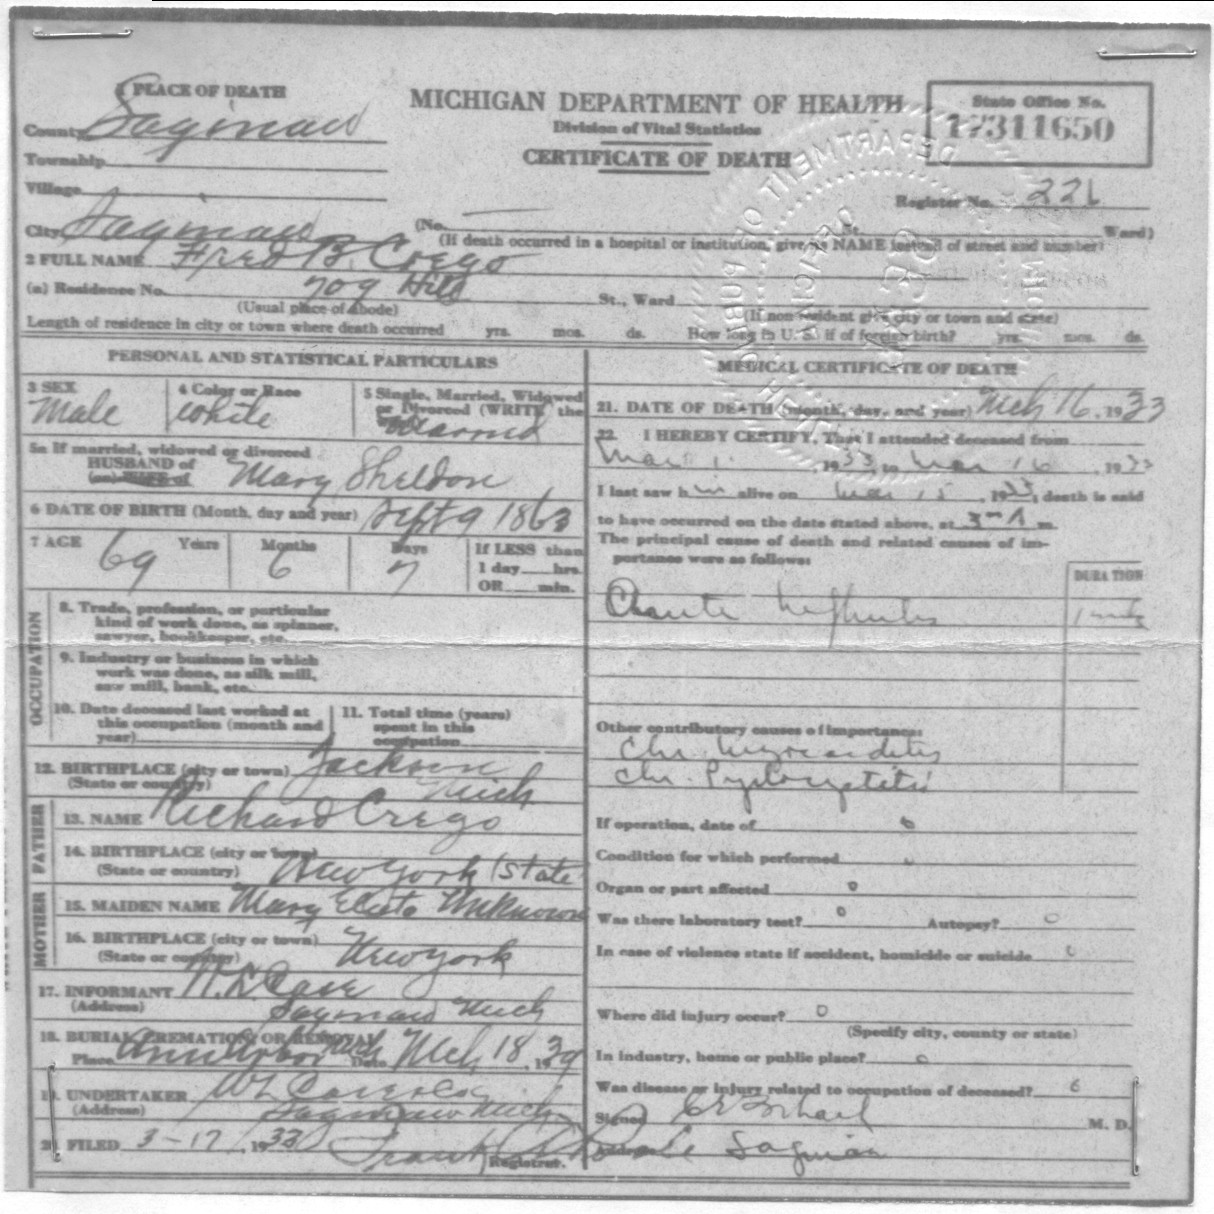 PLACE OF DEATH
County Saginaw
Township
Village
City Saginaw
MICHIGAN DEPARTMENT OF HEALTH
Division of Vital Statistics
CERTIFICATE OF DEATH
State Office No.
17311650
Register No. 221
(No. St. Ward)
(If death occurred in a hospital or institution, give its NAME instead of street and number)
2 FULL NAME Fred B. Crego
(a) Residence No. 709 Hill St., Ward
(Usual place of abode) (If non resident give city or town and state)
Length of residence in city or town where death occurred yrs. mos. ds. How long in U. S. if of foreign birth? yrs. mos. ds.
PERSONAL AND STATISTICAL PARTICULARS
3 SEX
Male
4 Color or Race
White
5 Single, Married, Widowed
or Divorced (WRITE the
Married
5a If married, widowed or divorced
HUSBAND of
(or) WIFE of Mary Sheldon
6 DATE OF BIRTH (Month, day and year) Sept 9 1863
7 AGE 69 Years 6 Months 7 Days
If LESS than
1 day hrs.
OR min.
OCCUPATION
8. Trade, profession, or particular
kind of work done, as spinner,
sawyer, bookkeeper, etc.
9. Industry or business in which
work was done, as silk mill,
saw mill, bank, etc.
10. Date deceased last worked at
this occupation (month and
year)
11. Total time (years)
spent in this
occupation
12. BIRTHPLACE (city or town) Jackson
(State or country) Mich
FATHER
13. NAME Richard Crego
14. BIRTHPLACE (city or town)
(State or country) New York (State
MOTHER
15. MAIDEN NAME Mary Unknown
16. BIRTHPLACE (city or town)
(State or country) New York
17. INFORMANT W. L. Case
(Address) Saginaw Mich
18. BURIAL, CREMATION, OR REMOVAL
Place Ann Arbor Mich Date Mch 18, 19
19. UNDERTAKER W L Case & Co
(Address) Saginaw Mich
20. FILED 3-17, 1933 Frank
Registrar.
MEDICAL CERTIFICATE OF DEATH
21. DATE OF DEATH (month, day, and year) Mch 16, 1933
22. I HEREBY CERTIFY, That I attended deceased from
Mar 1, 1933 to Mar 16, 1933
I last saw him alive on Mar 15, 1933; death is said
to have occurred on the date stated above, at 3 A m.
The principal cause of death and related causes of im-
portance were as follows:
DURATION
Nephritis
Other contributory causes of importance:
Chr. Myocarditis
Chr. Pyelocystitis
If operation, date of 0
Condition for which performed
Organ or part affected 0
Was there laboratory test? 0 Autopsy? 0
In case of violence state if accident, homicide or suicide 0
Where did injury occur? 0
(Specify city, county or state)
In industry, home or public place? 0
Was disease or injury related to occupation of deceased? 0
Signed M. D.
Saginaw